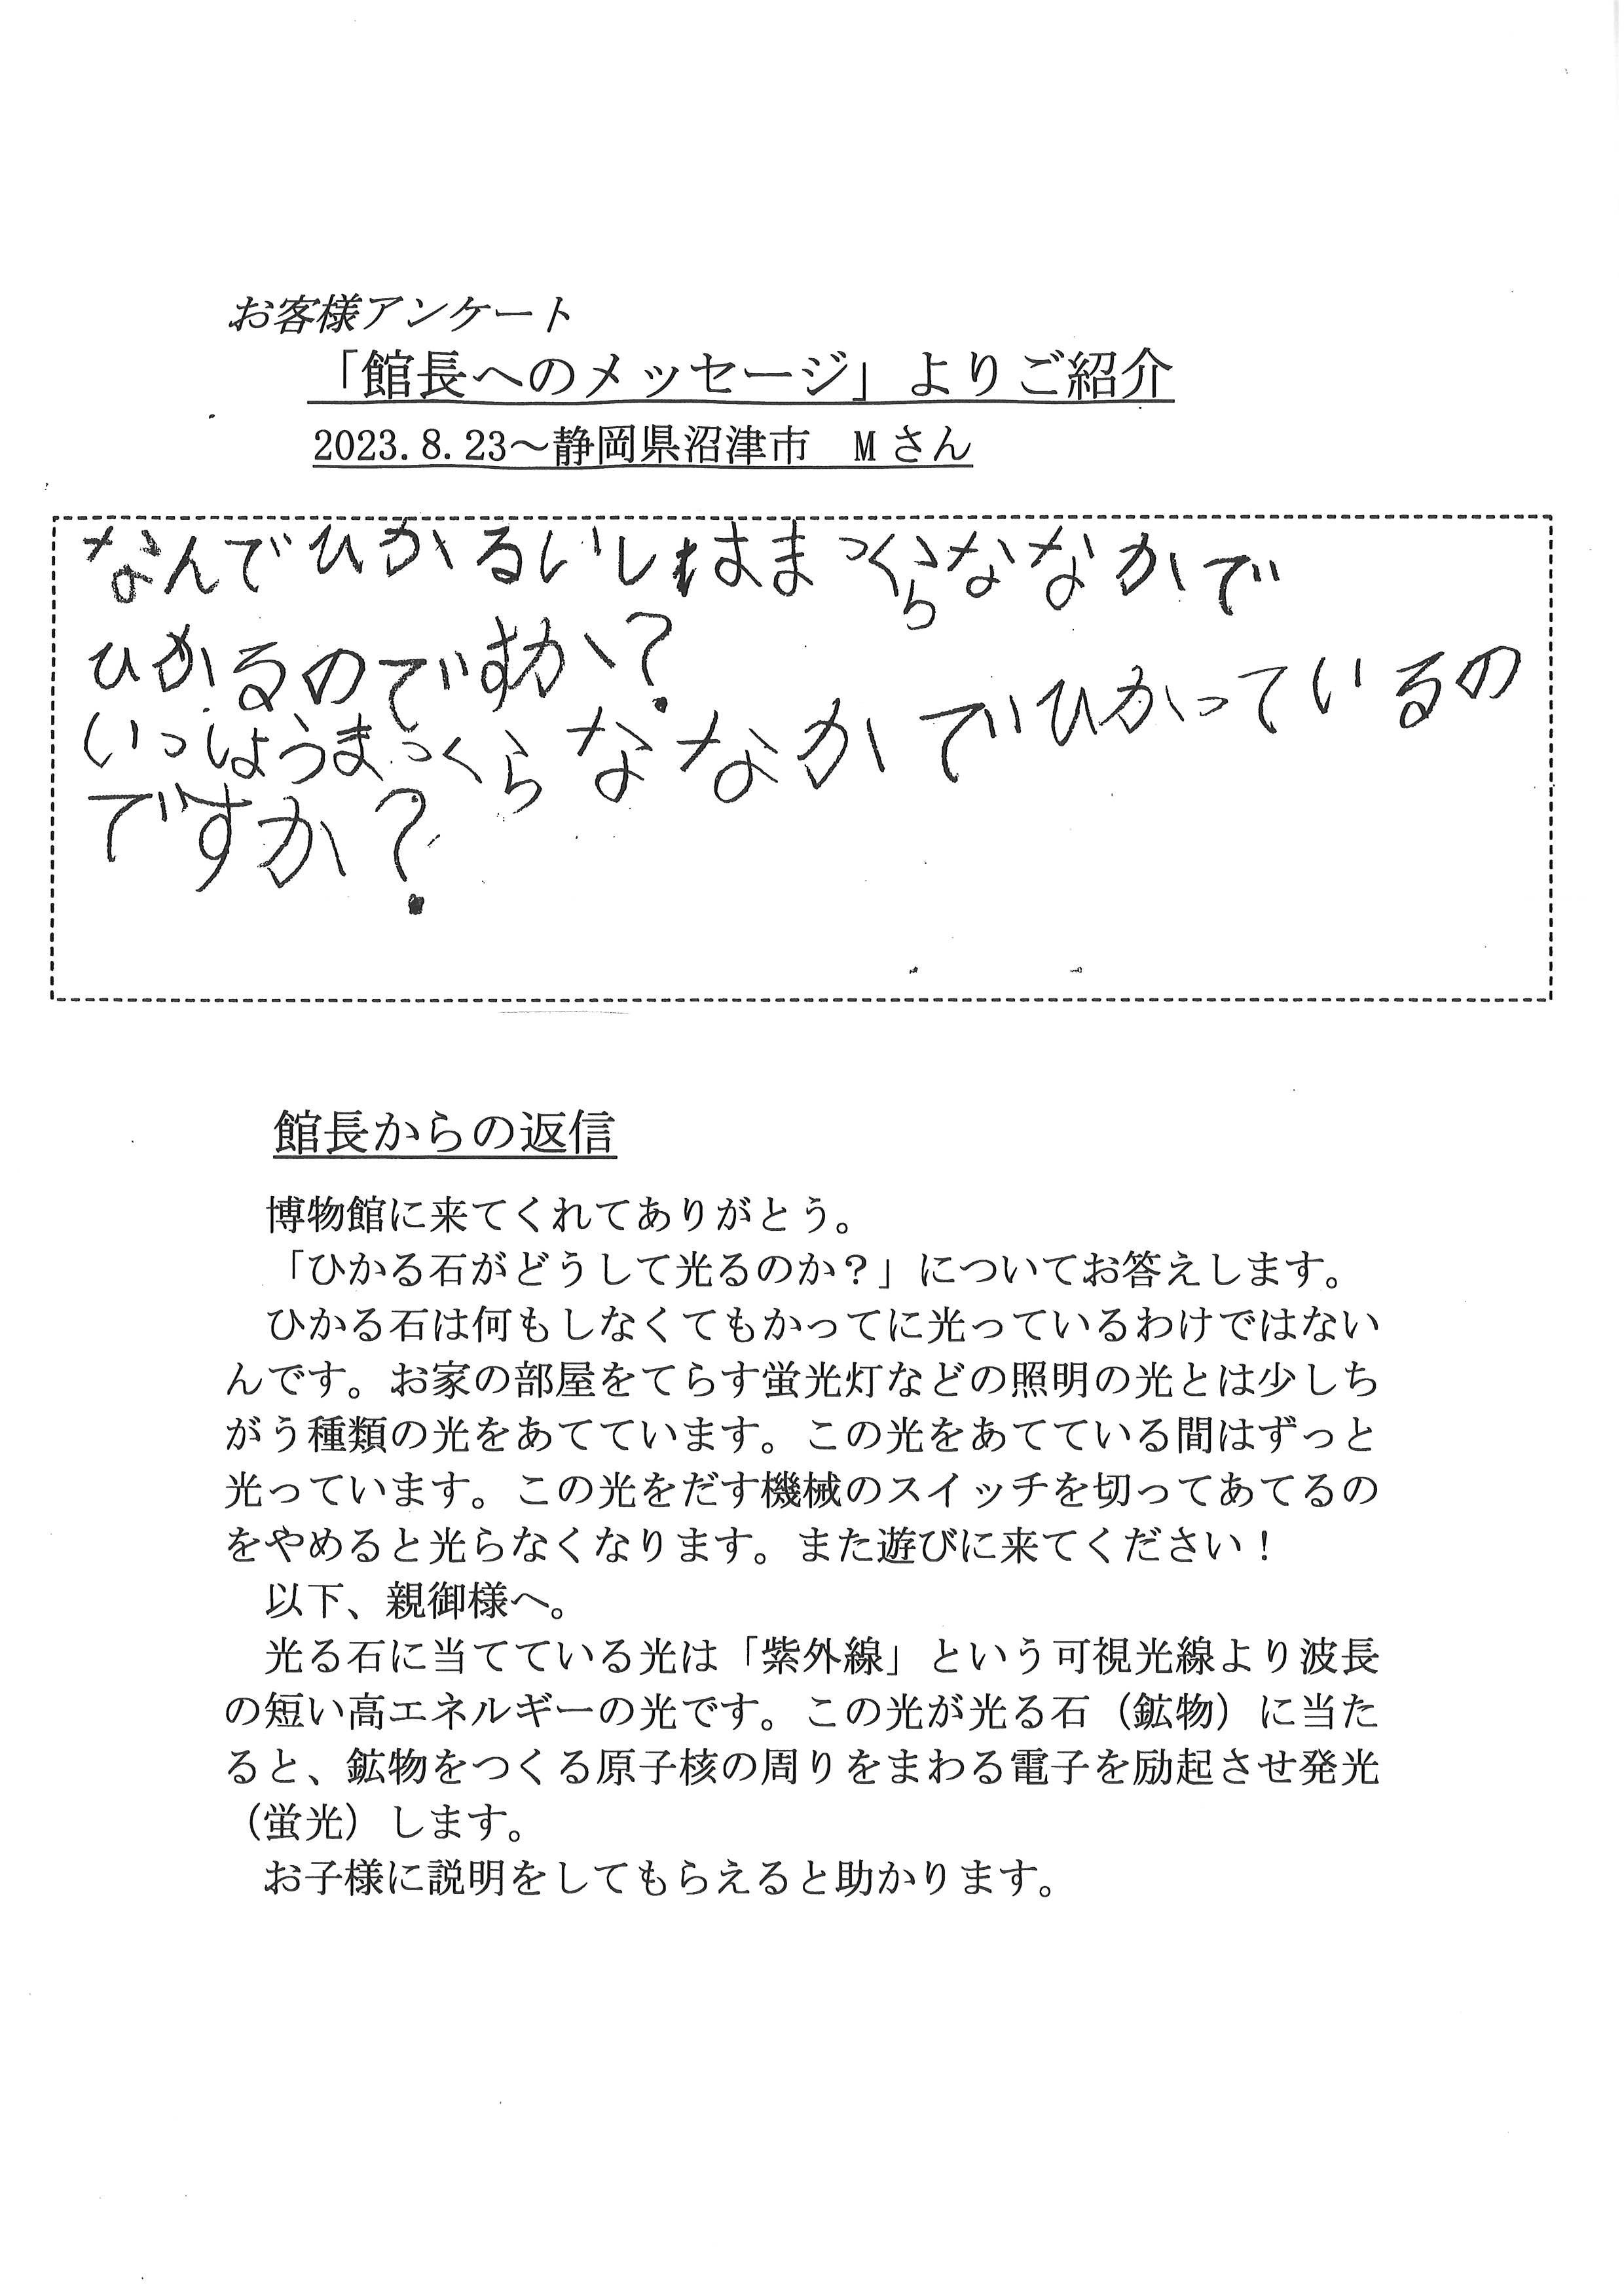 お客様アンケート
「館長へのメッセージ」よりご紹介
2023.8.23～静岡県沼津市　Mさん
なんでひかるいしはまっくらななかで
ひかるのですか？
いっしょうまっくらななかでひかっているの
ですか？
館長からの返信
博物館に来てくれてありがとう。
「ひかる石がどうして光るのか？」についてお答えします。
ひかる石は何もしなくてもかってに光っているわけではない
んです。お家の部屋をてらす蛍光灯などの照明の光とは少しち
がう種類の光をあてています。この光をあてている間はずっと
光っています。この光をだす機械のスイッチを切ってあてるの
をやめると光らなくなります。また遊びに来てください！
以下、親御様へ。
光る石に当てている光は「紫外線」という可視光線より波長
の短い高エネルギーの光です。この光が光る石（鉱物）に当た
ると、鉱物をつくる原子核の周りをまわる電子を励起させ発光
（蛍光）します。
お子様に説明をしてもらえると助かります。